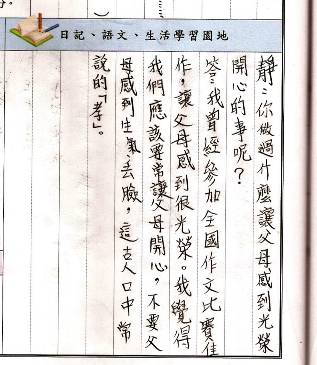 日記、語文、生活學習園地
靜：你做過什麼讓父母感到光榮
開心的事呢？
答：我曾經參加全國作文比賽佳
作，讓父母感到很光榮。我覺得
我們應該要常讓父母開心，不要父
母感到生氣、丟臉，這古人口中常
說的「孝」。